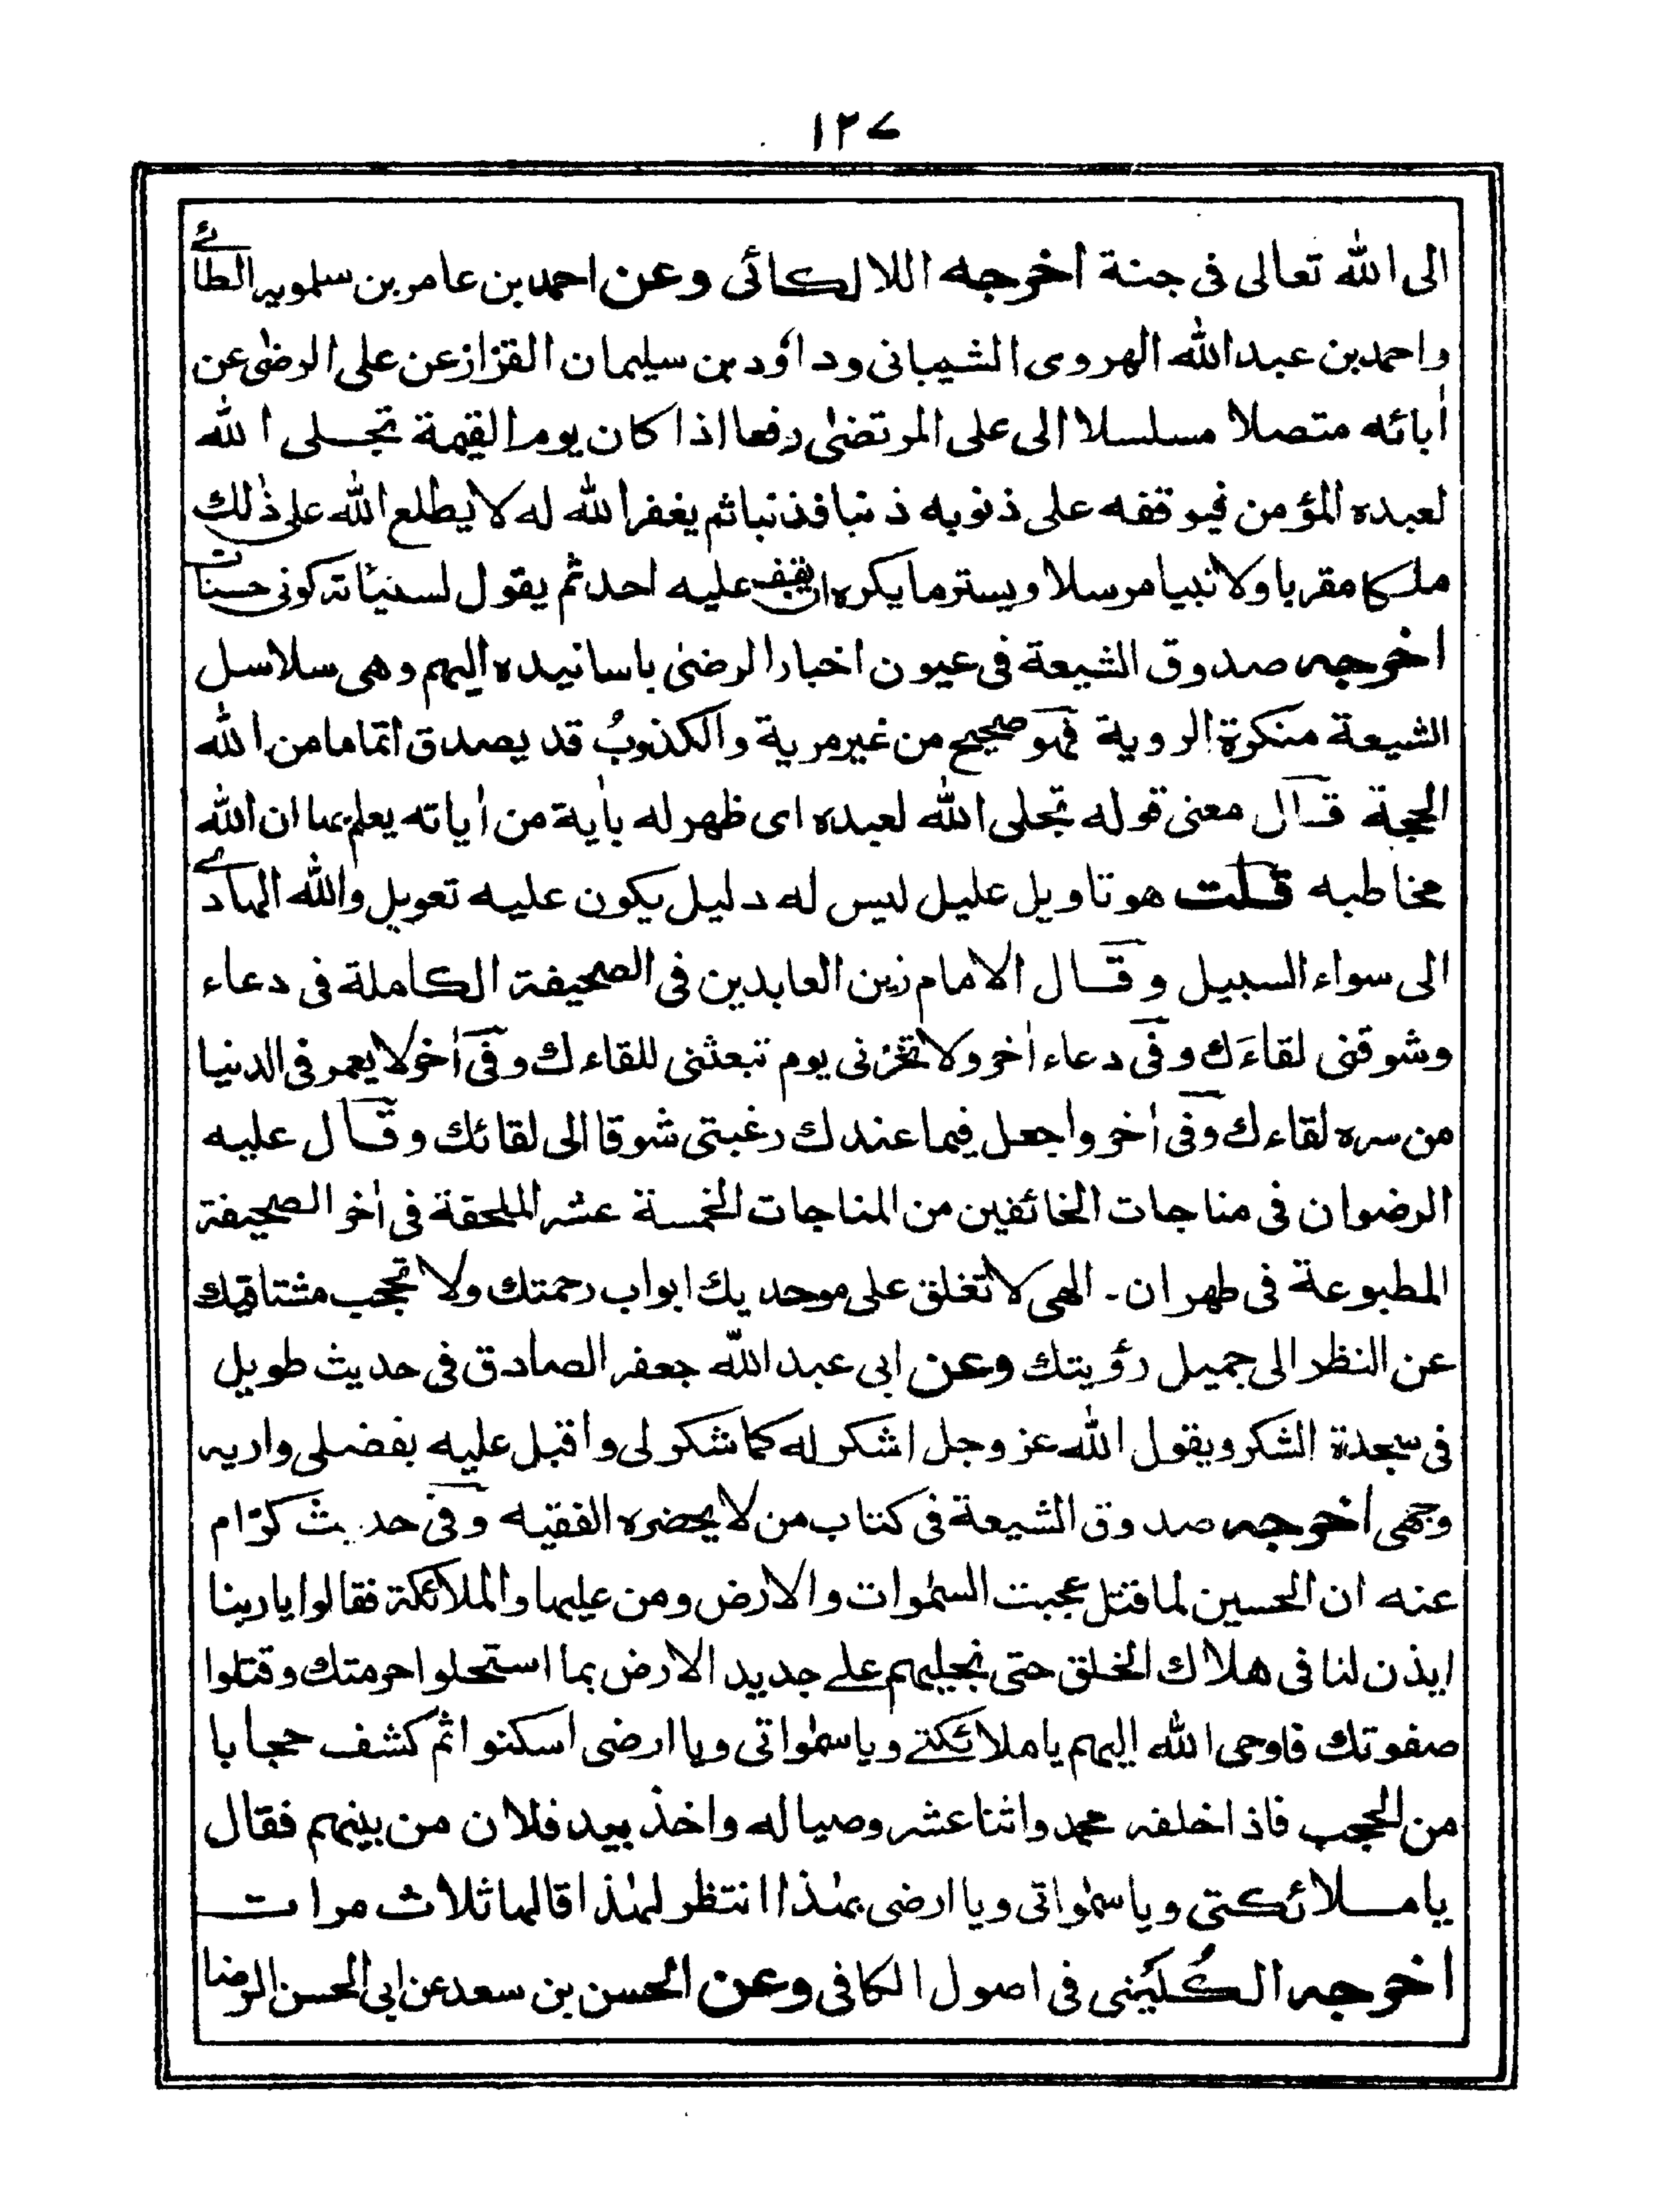 ١٢٧
الى الله تعالى فى جنة اخرجه اللالكائى وعن احمد بن عامر بن سلمويه الطائے
واحمد بن عبد الله الهروى الشيبانى وداؤد بن سليمان القزاز عن على الرضىٰ عن
اٰبائه متصلا مسلسلا الى على المرتضىٰ رفعا اذا كان يوم القيٰمة تجلى الله
لعبده المؤمن فيوقفه على ذنوبه ذنبا فذنبا ثم يغفر الله له لا يطلع الله على ذٰلك
ملكا مقربا ولا نبيا مرسلا ويستر ما يكره ان يقف عليه احد ثم يقول لسيئاته كونى حسنات
اخرجه صدوق الشيعة فى عيون اخبار الرضىٰ باسانيده اليهم وهى سلاسل
الشيعة منكرة الروية فهو صحيح من غير مرية والكذوبُ قد يصدق اتماما من الله
الحجة قال معنى قوله تجلى الله لعبده اى ظهر له باٰية من اٰياته يعلم بها ان الله
مخاطبه قلت هو تاويل عليل ليس له دليل يكون عليه تعويل والله الهادے
الى سواء السبيل وقال الامام زين العابدين فى الصحيفة الكاملة فى دعاء
وشوقنى لقاءَك وفى دعاء اٰخر ولا تخزنى يوم تبعثنى للقاءك وفى اٰخر لا يعمر فى الدنيا
من سره لقاءك وفى اٰخر واجعل فيما عندك رغبتى شوقا الى لقائك وقال عليه
الرضوان فى مناجات الخائفين من المناجات الخمسة عشر الملحقة فى اٰخر الصحيفة
المطبوعة فى طهران۔ الهى لا تغلق على موحديك ابواب رحمتك ولا تحجب مشتاقيك
عن النظر الى جميل رؤيتك وعن ابى عبد الله جعفر الصادق فى حديث طويل
فى سجدة الشكر ويقول الله عز وجل اشكر له كما شكر لى واقبل عليه بفضلى واريه
وجهى اخرجه صدوق الشيعة فى كتاب من لا يحضره الفقيه وفى حديث كرّام
عنه ان الحسين لما قتل عجبت السمٰوات والارض ومن عليها والملائكة فقالوا يا ربنا
ايذن لنا فى هلاك الخلق حتى نجليهم علے جديد الارض بما استحلوا حرمتك وقتلوا
صفوتك فاوحى الله اليهم يا ملائكتے ويا سمٰواتى ويا ارضى اسكنوا ثم كشف حجابا
من الحجب فاذا خلفه محمد واثنا عشر وصيا له واخذ بيد فلان من بينهم فقال
يا ملائكتى ويا سمٰواتى ويا ارضى بهٰذا انتظر لهٰذا قالها ثلاث مرات
اخرجه الكُلَينى فى اصول الكافى وعن الحسن بن سعد عن ابى الحسن الرضا